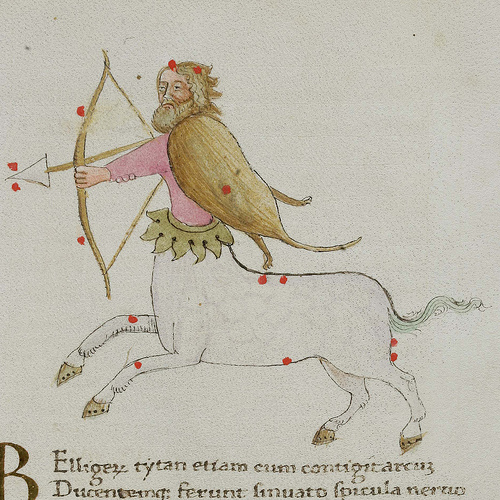 Belligeꝝ tytan etiam cum contigit arcuꝫ
Ducentemqꝫ ferunt sinuato spicula neruo